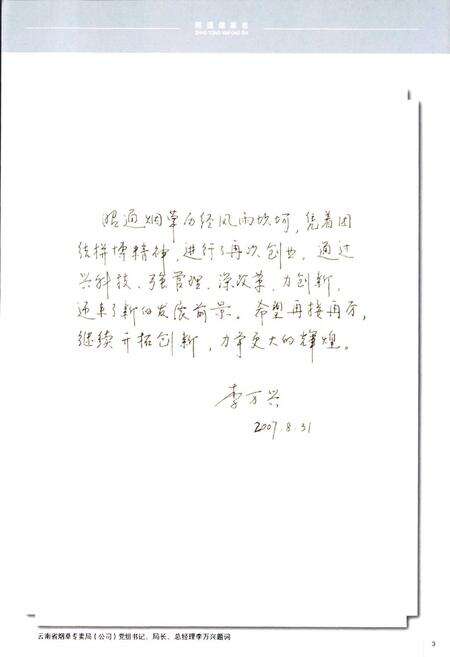 昭通烟草志
昭通烟草历经风雨坎坷，凭着团
结拼搏精神，进行了再次创业。通过
兴科技、强管理、深改革、力创新，
迎来了新的发展前景。希望再接再厉，
继续开拓创新，力争更大的辉煌。
李万兴
2007.8.31
云南省烟草专卖局（公司）党组书记、局长、总经理李万兴题词
3